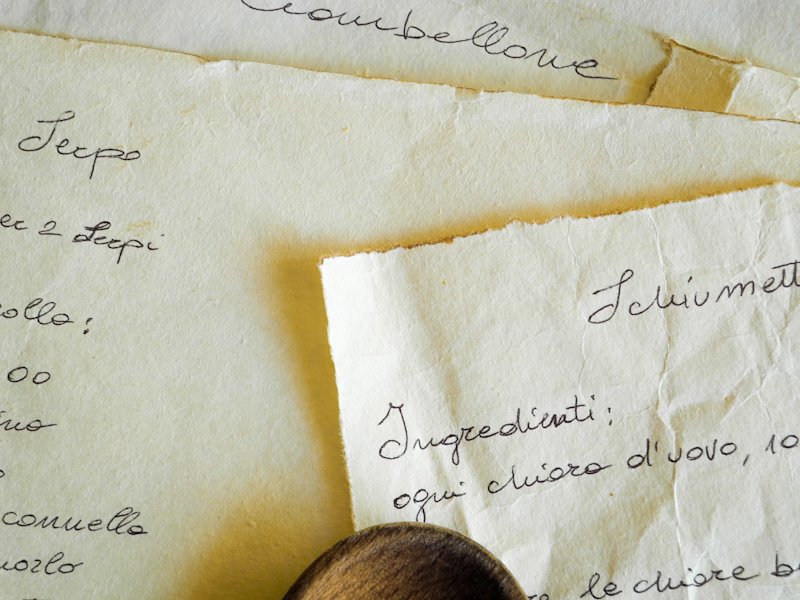 Ciambellone
Serpe
er 2 Serpi
olla:
00
ino
o
cannella
uorlo
Schiumett
Ingredienti:
ogni chiara d'uovo, 10
le chiare b